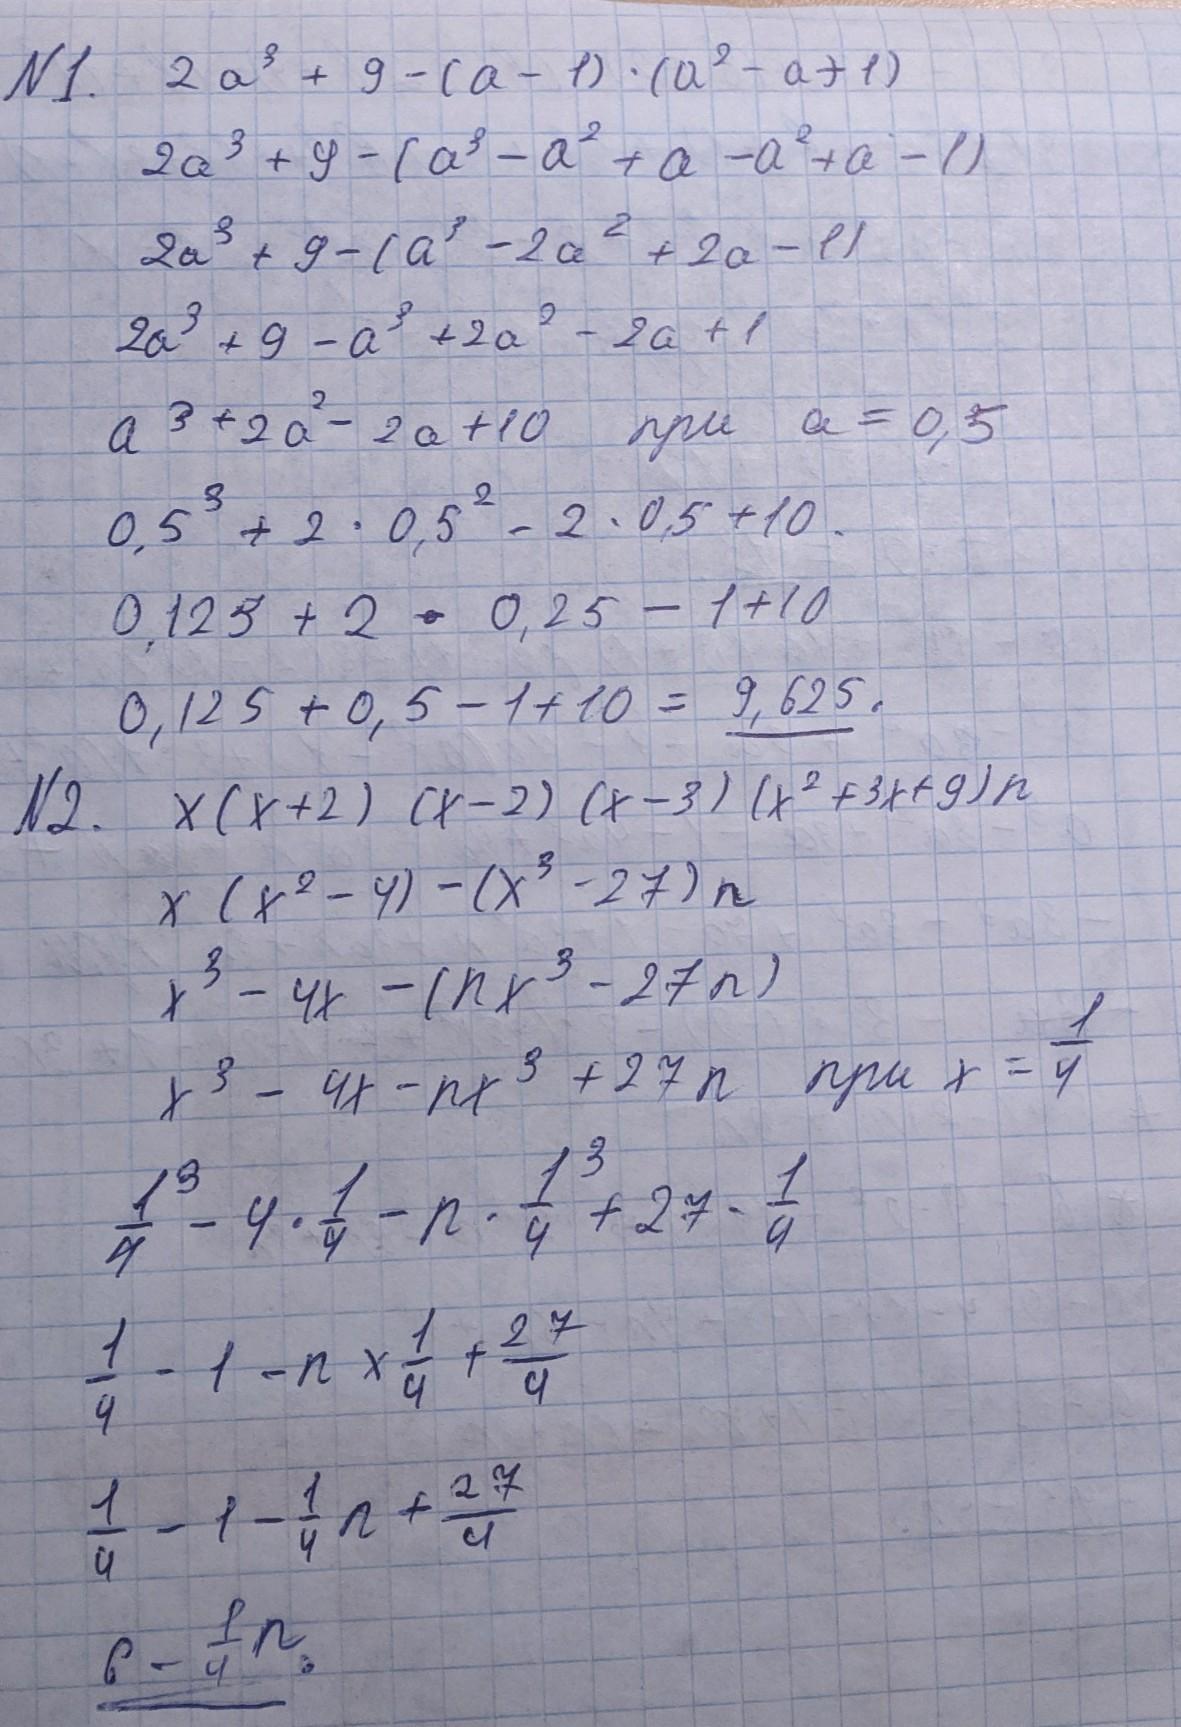 N1. 2a³ + 9 - (a - 1) · (a² - a + 1)
2a³ + 9 - (a³ - a² + a - a² + a - 1)
2a³ + 9 - (a³ - 2a² + 2a - 1)
2a³ + 9 - a³ + 2a² - 2a + 1
a³ + 2a² - 2a + 10 при a = 0,5
0,5³ + 2 · 0,5² - 2 · 0,5 + 10.
0,125 + 2 · 0,25 - 1 + 10
0,125 + 0,5 - 1 + 10 = 9,625.
N2. x(x+2) (x-2) (x-3) (x²+3x+9)n
x (x² - 4) - (x³ - 27) n
x³ - 4x - (nx³ - 27n)
x³ - 4x - nx³ + 27n при x = 1/4
1/4³ - 4 · 1/4 - n · 1/4³ + 27 · 1/4
1/4 - 1 - n × 1/4 + 27/4
1/4 - 1 - 1/4 n + 27/4
6 - 1/4 n.